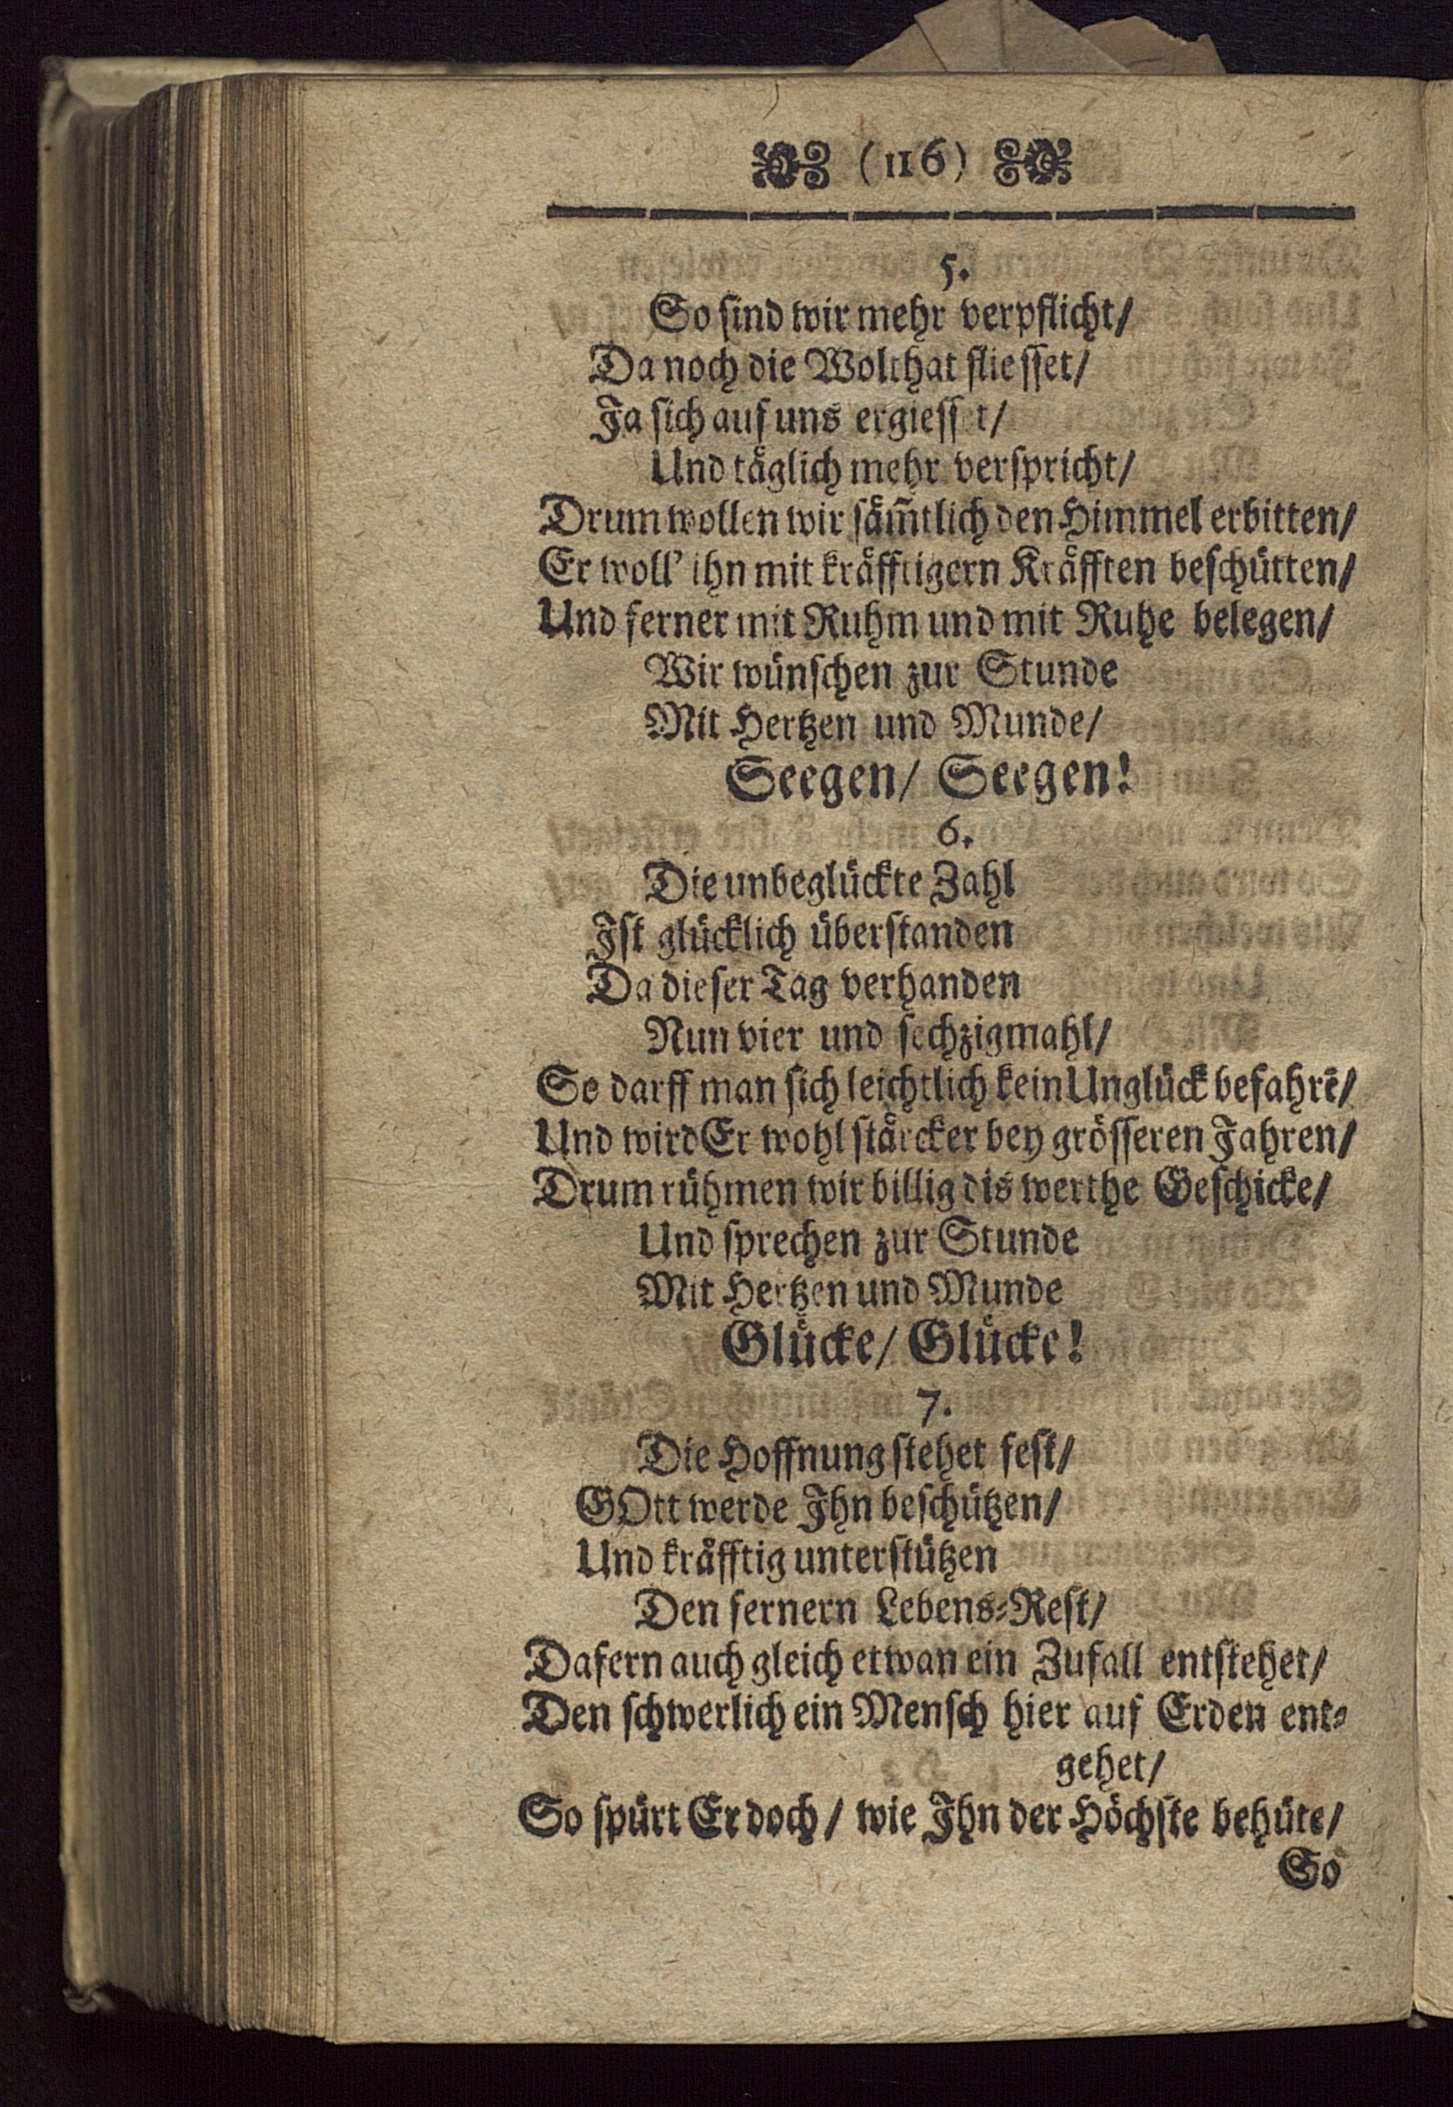 (116)
5.
So sind wir mehr verpflicht/
Da noch die Wolthat fliesset/
Ja sich auf uns ergiess t/
Und täglich mehr verspricht/
Drum wollen wir säm̃tlich den Himmel erbitten/
Er woll' ihn mit kräfftigern Kräfften beschütten/
Und ferner mit Ruhm und mit Ruhe belegen/
Wir wünschen zur Stunde
Mit Hertzen und Munde/
Seegen/ Seegen!
6.
Die unbeglückte Zahl
Ist glücklich überstanden
Da dieser Tag verhanden
Nun vier und sechzigmahl/
So darff man sich leichtlich kein Unglück befahrē/
Und wird Er wohl stärcker bey grösseren Jahren/
Drum rühmen wir billig dis werthe Geschicke/
Und sprechen zur Stunde
Mit Hertzen und Munde
Glücke/ Glücke!
7.
Die Hoffnung stehet fest/
GOtt werde Ihn beschützen/
Und kräfftig unterstützen
Den fernern Lebens-Rest/
Dafern auch gleich etwan ein Zufall entstehet/
Den schwerlich ein Mensch hier auf Erden ent-
gehet/
So spürt Er doch/ wie Ihn der Höchste behüte/
So